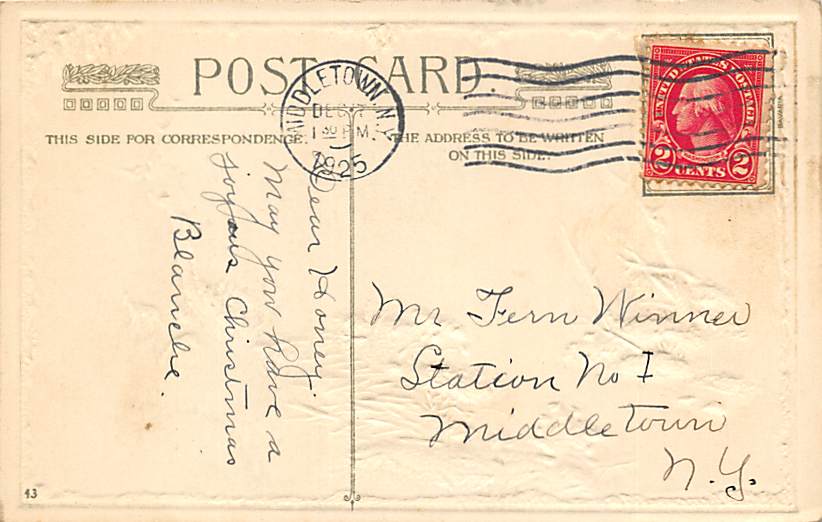 POST CARD
THIS SIDE FOR CORRESPONDENCE.
THE ADDRESS TO BE WRITTEN
ON THIS SIDE.
MIDDLETOWN, N.Y.
DEC
1 30 P.M.
1925
UNITED STATES POSTAGE
2 CENTS 2
Dear Honey.
May you have a
joyous Christmas
Blanche.
Mr Fern Winner
Station No I
Middletown
N.Y.
43